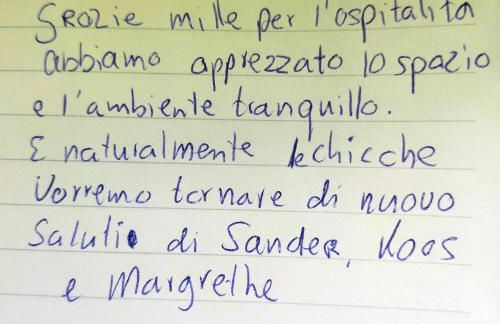 Grazie mille per l'ospitalità
abbiamo apprezzato lo spazio
e l'ambiente tranquillo.
E naturalmente le chicche
Vorremo tornare di nuovo
Saluti di Sander, Koos
e Margrethe